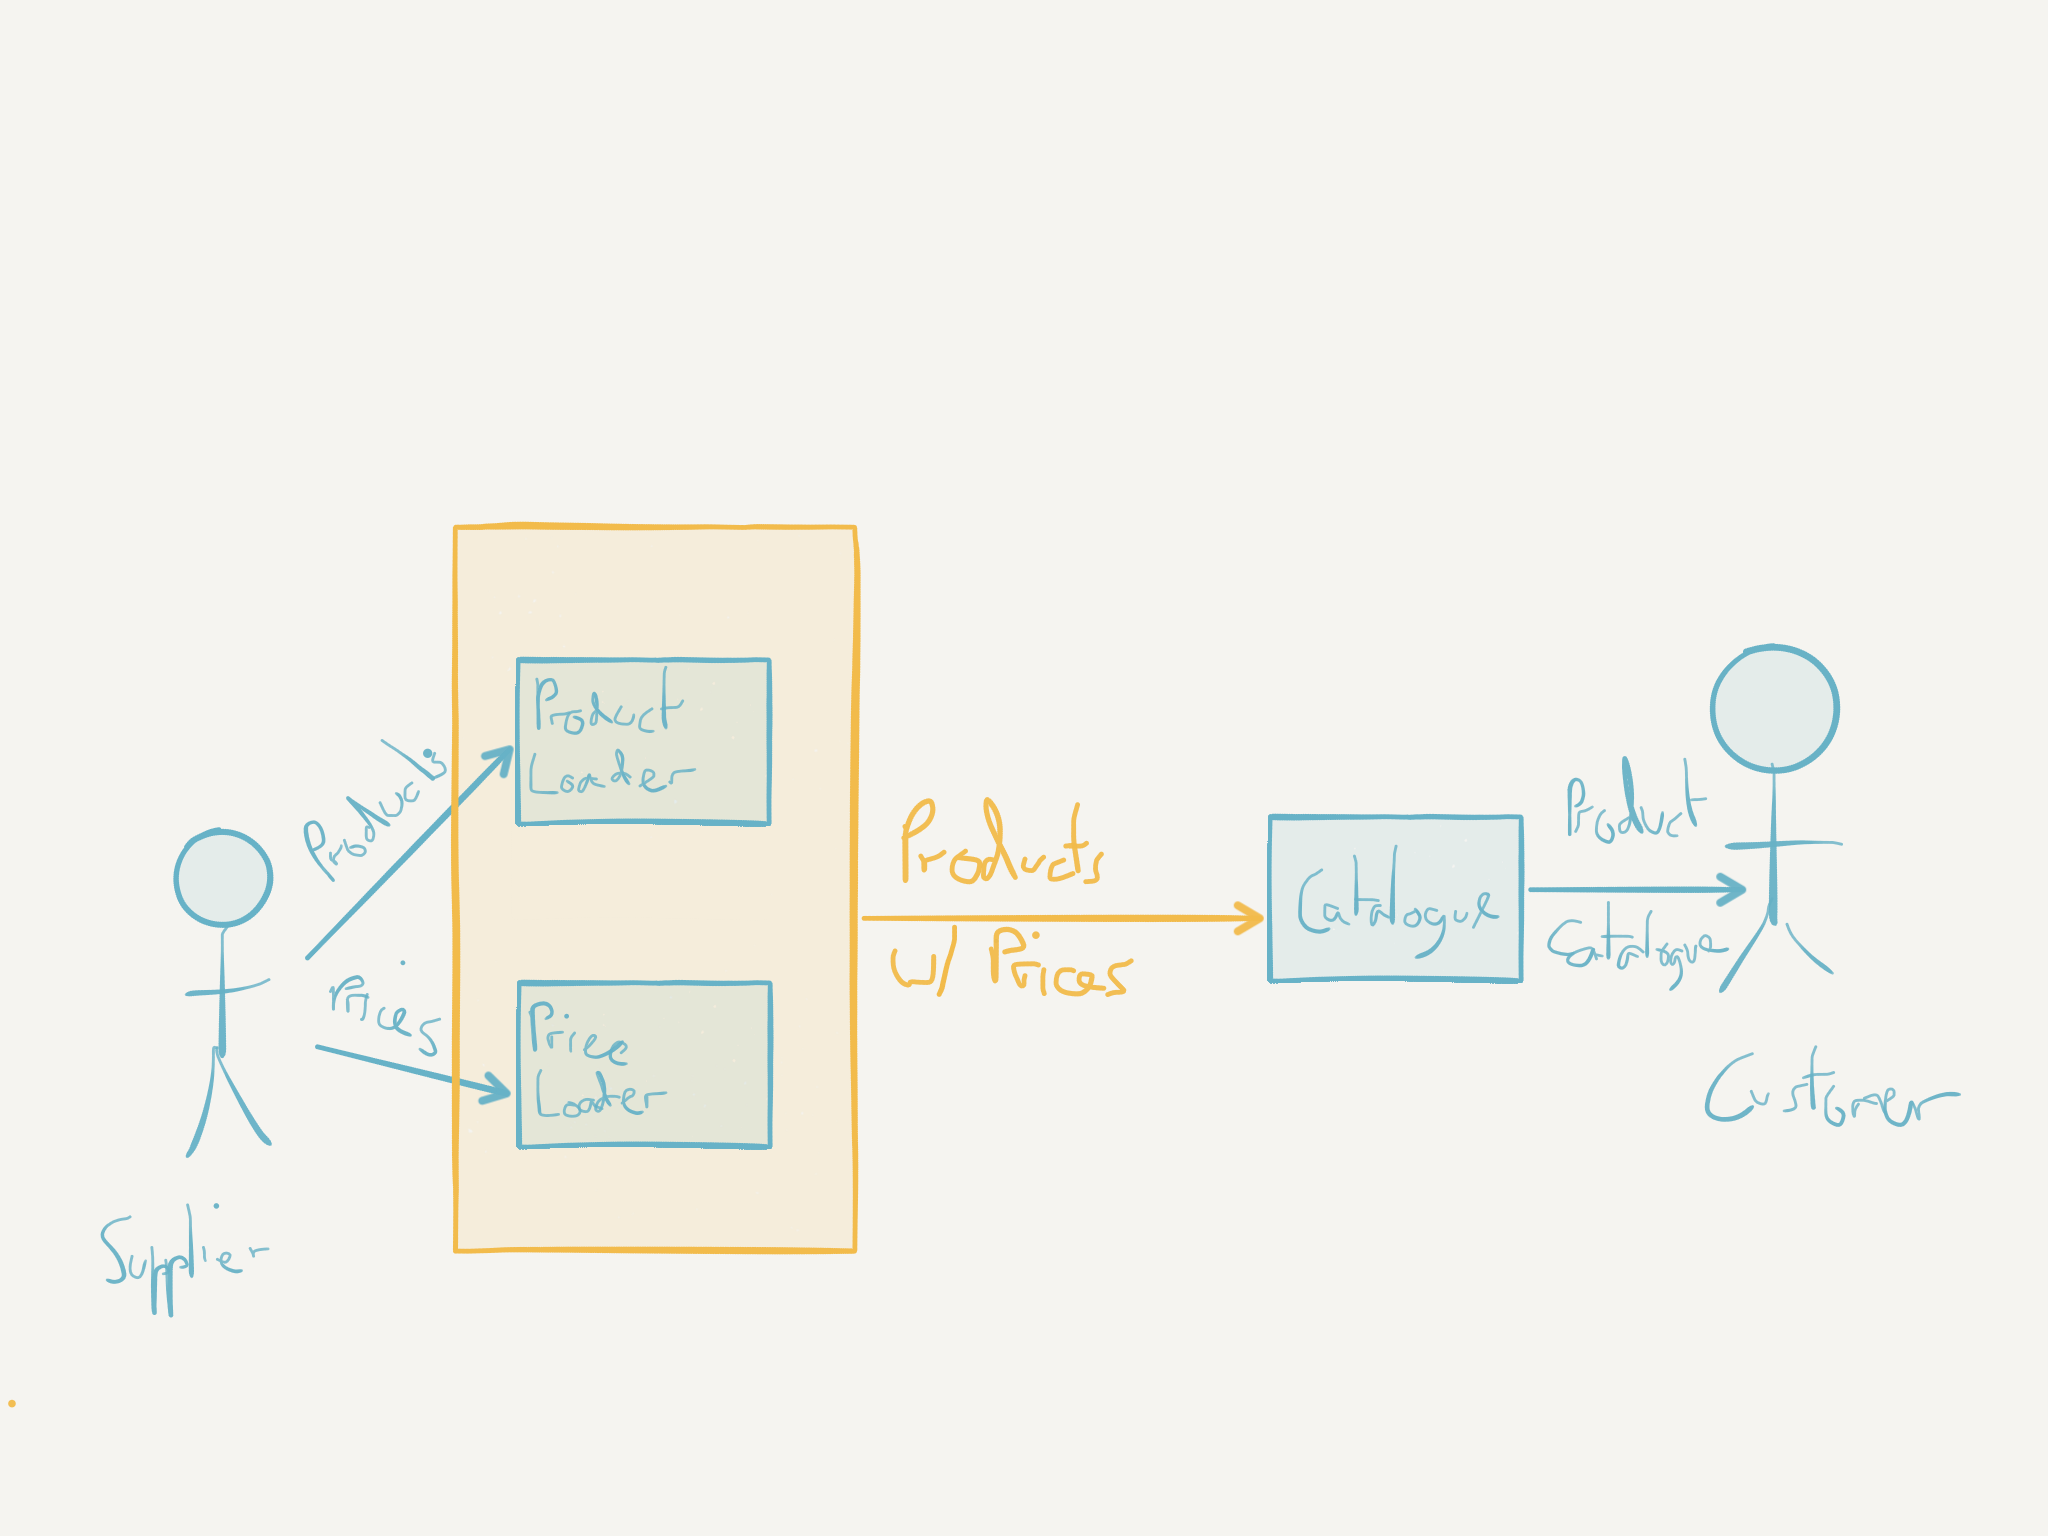 Products
Prices
Supplier
Product
Loader
Price
Loader
Products
w/ Prices
Catalogue
Product
Catalogue
Customer